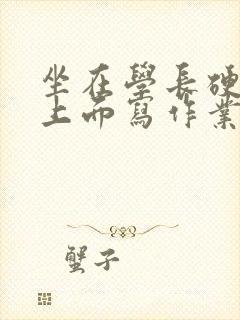 坐在學長硬
上而寫作業
蟹子